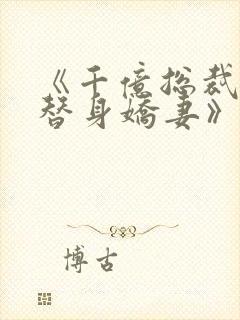 《千億总裁
替身嬌妻》
博古